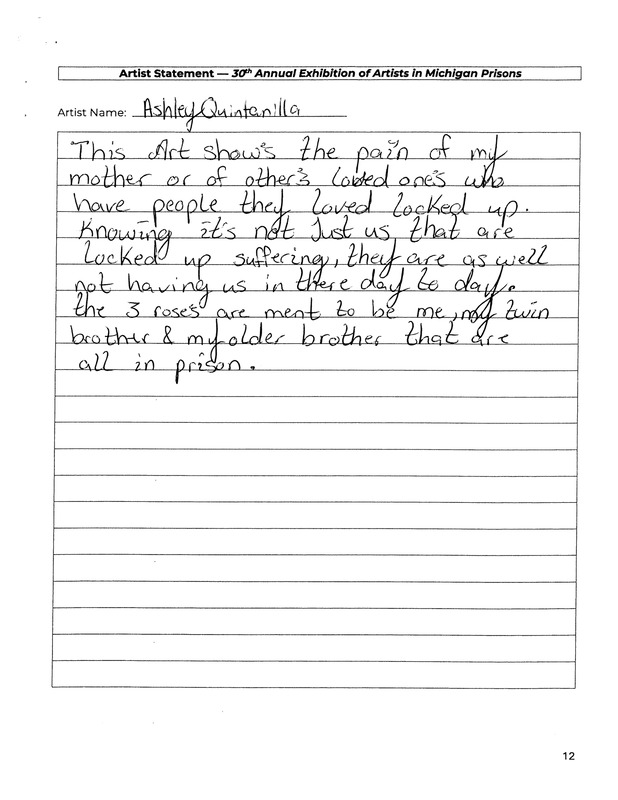 Artist Statement — 30th Annual Exhibition of Artists in Michigan Prisons
Artist Name: Ashley Quintanilla
This Art show's the pain of my
mother or of other's loved one's who
have people they loved locked up.
Knowing it's not Just us that are
locked up suffering, they are as well
not having us in there day to day.
the 3 roses are ment to be me, my twin
brother & my older brother that are
all in prison.
12